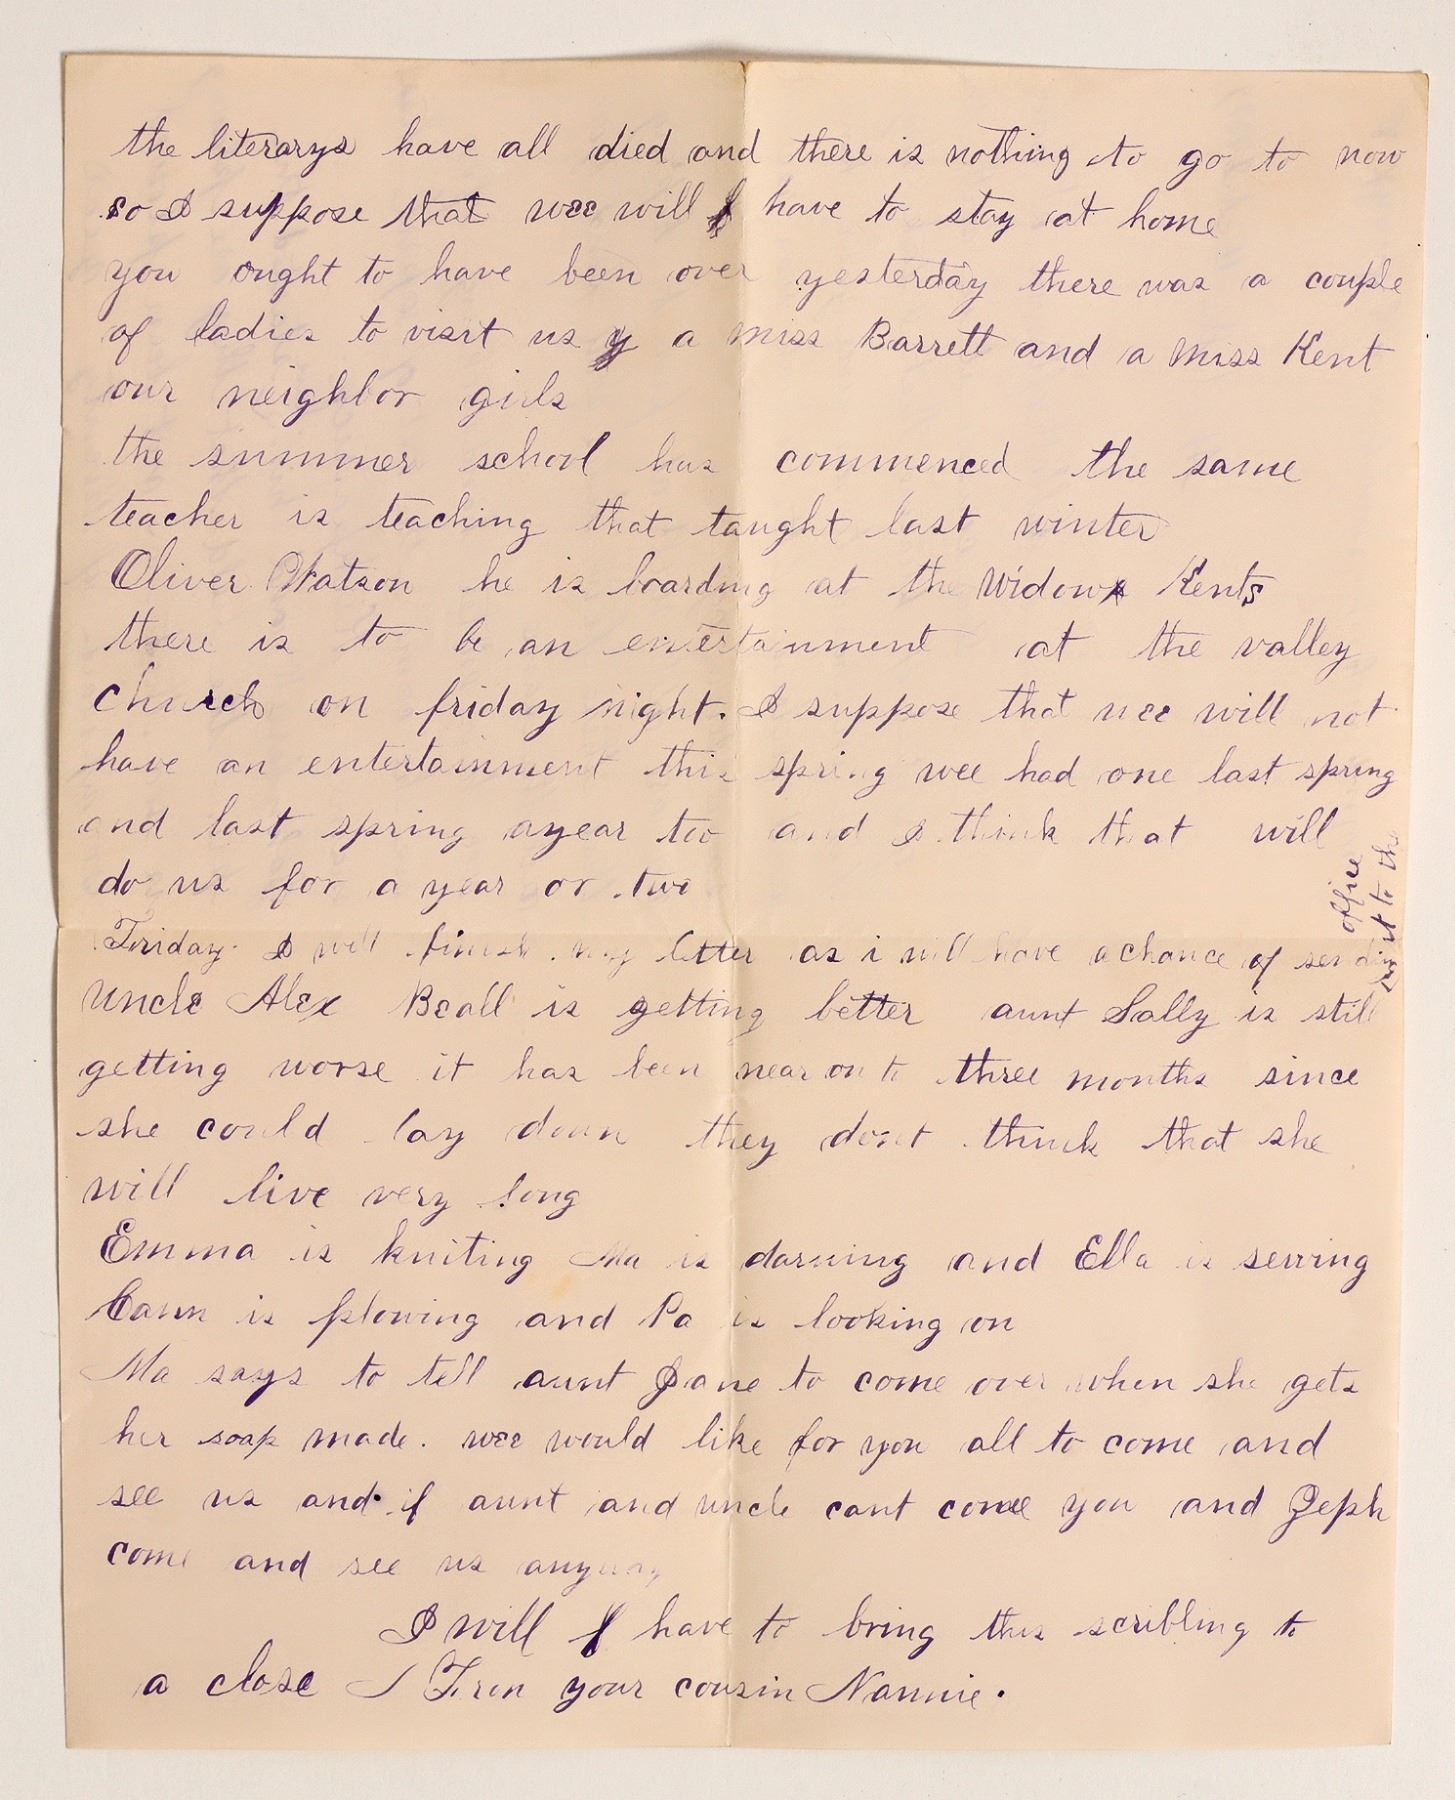 the literarys have all died and there is nothing to go to now
so I suppose that wee will have to stay at home
you ought to have been over yesterday there was a couple
of ladies to visit us a Miss Barrett and a Miss Kent
our neighbor girls
the summer school has commenced the same
teacher is teaching that taught last winter
Oliver Watson he is boarding at the Widow Kents
there is to be an entertainment at the valley
church on friday night. I suppose that wee will not
have an entertainment this spring wee had one last spring
and last spring ayear too and I think that will
do us for a year or two
Friday I will finish my letter as i will have a chance of sending
it to the
office
Uncle Alex Beall is getting better aunt Sally is still
getting worse it has been near onto three months since
she could lay down they dont think that she
will live very long
Emma is kniting Ma is darning and Ella is sewing
Cann is plowing and Pa is looking on
Ma says to tell aunt Jane to come over when she gets
her soap made. wee would like for you all to come and
see us and if aunt and uncle cant come you and Zeph
come and see us anyway
I will have to bring this scribling to
a close From your cousin Nannie.